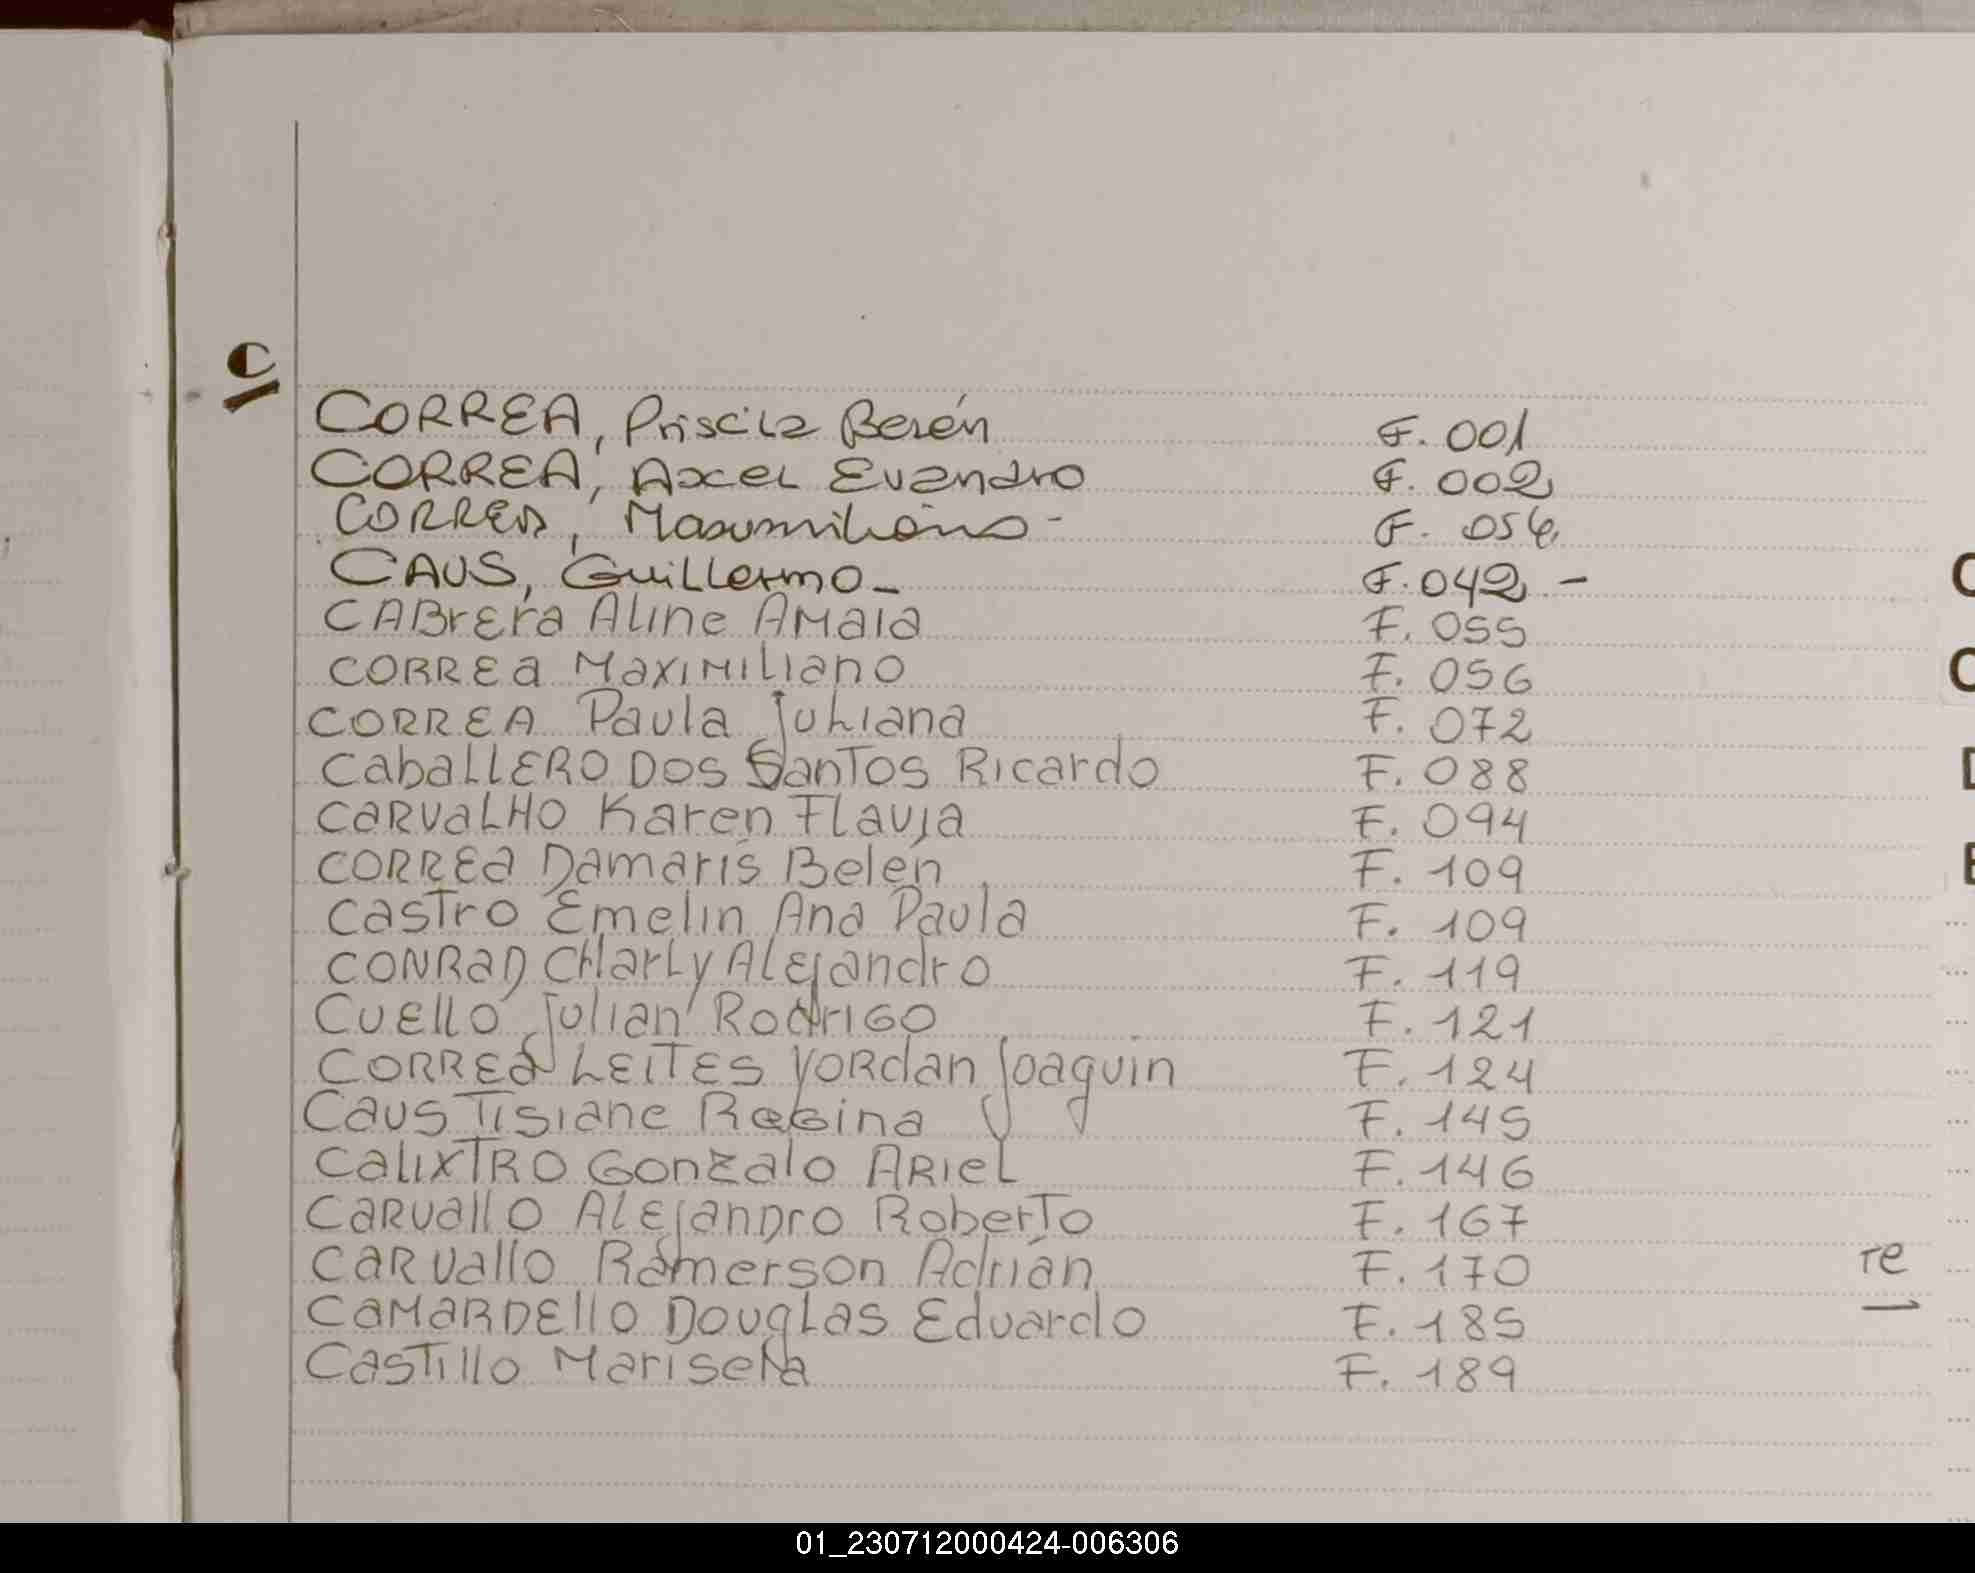 C
CORREA, Priscila Belén F. 001
CORREA, Axel Evandro F. 002
CORREA, Maximiliano - F. 056
CAUS, Guillermo - F. 042 -
CABrEra Aline AMaia F. 055
CORREa MaxiMiliano F. 056
CORREA Paula Juliana F. 072
CabaLLERO DOS SanTOS Ricardo F. 088
CaRvaLHO Karen Flavia F. 094
CORREa Damaris Belén F. 109
CasTro Emelin Ana Paula F. 109
CONRAD CHarLy ALEjandrO F. 119
CUEllO Julian RodriGO F. 121
CORREa LEITES YORdan Joaquin F. 124
Caus Tisiane ReGina F. 145
CaLixTRO GonZalo ARieL F. 146
CaRvallO ALEjanDrO RoberTo F. 167
CaRvallo Ramerson Adrián F. 170
CaMaRDEllO DougLas Eduardo F. 185
CasTillo Marisela F. 189
C
C
D
E
re
01_230712000424-006306